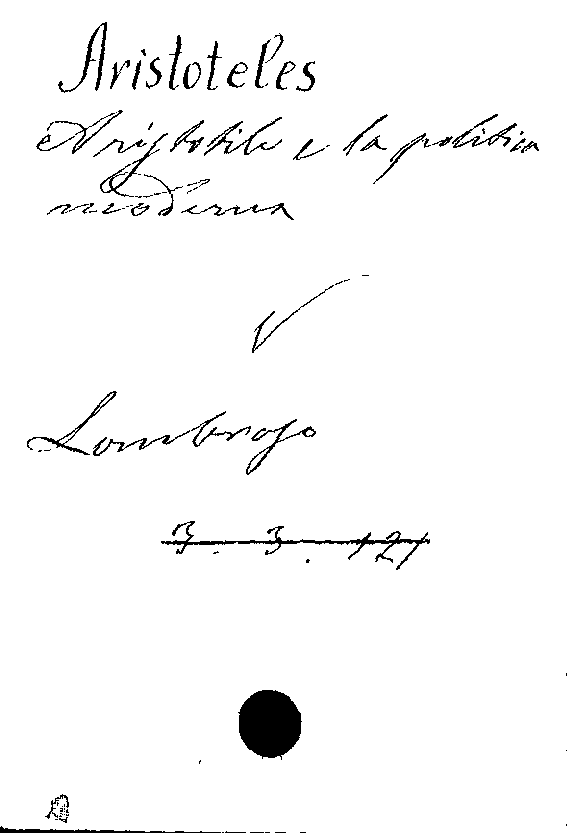 Aristoteles
Aristotile e la politica
moderna
V
Lombroso
3. 3. 121